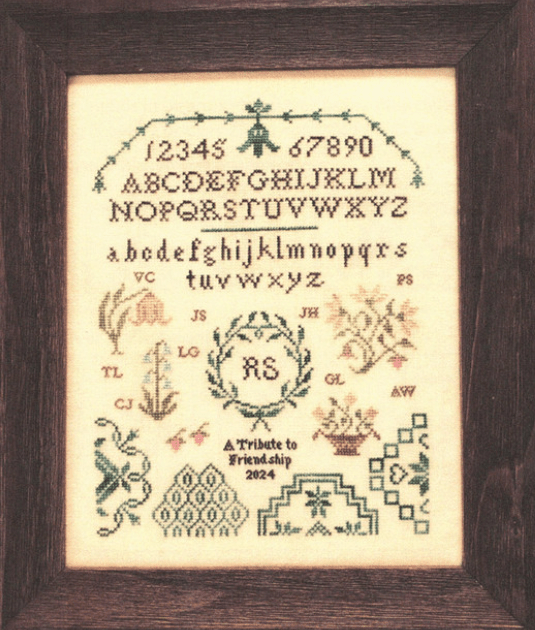 12345 67890
ABCDEFGHIJKLM
NOPQRSTUVWXYZ
abcdefghijklmnopqrs
tuvwxyz
VC
PS
JS
JH
LG
TL
RS
GL
AW
CJ
A Tribute to
Friendship
2024